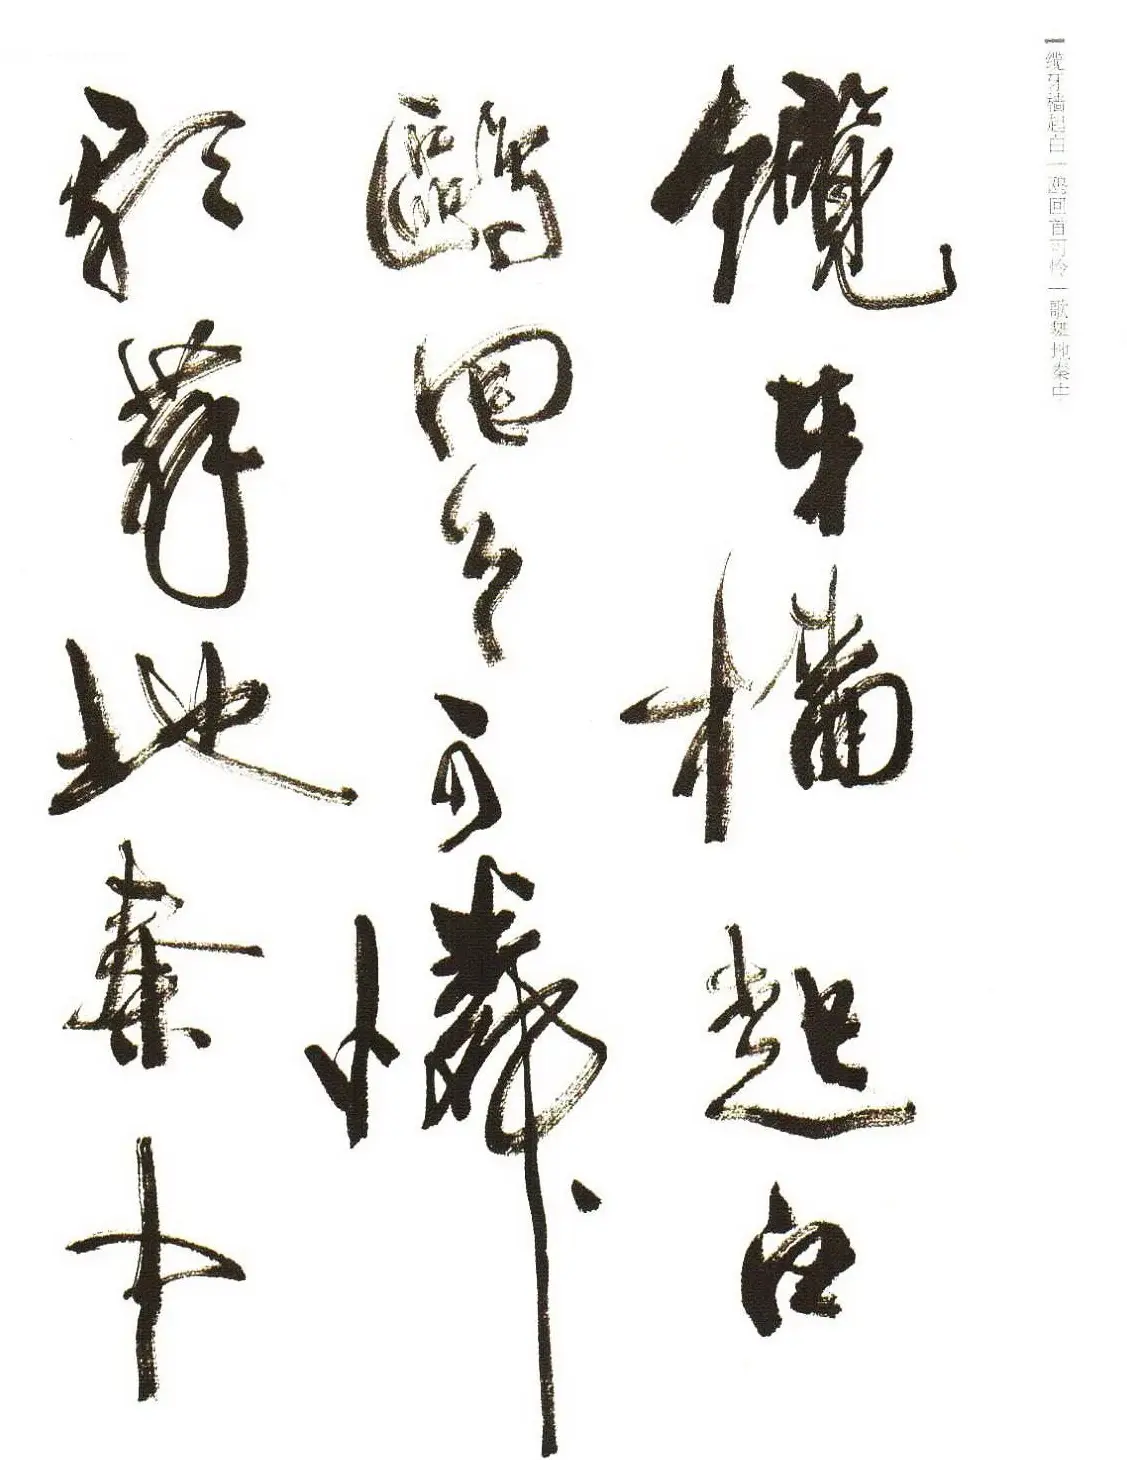 缆牙樯起白一鸥回首可怜一歌舞地秦中
纜牙檣起白
鷗回首可憐
歌舞地秦中